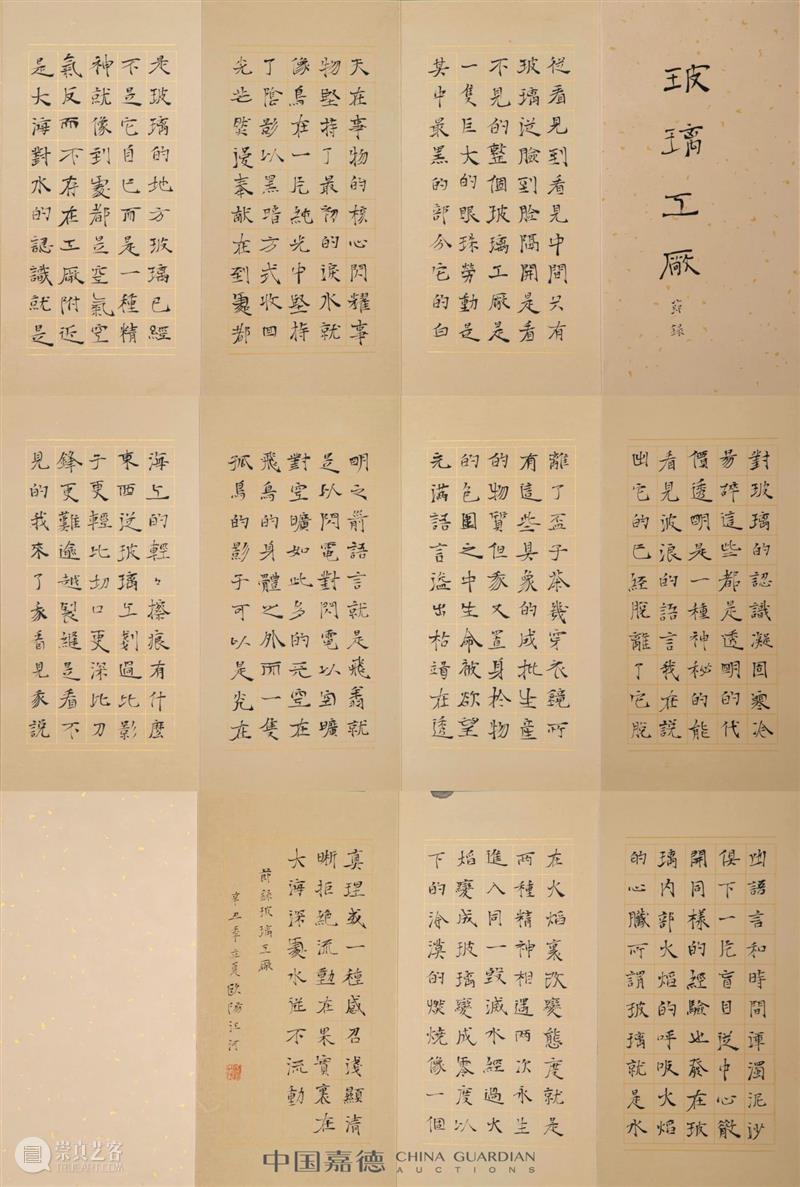 玻璃工厰
節錄
從看見到看見中間只有
玻璃從臉到臉隔開是看
不見的整個玻璃工厰是
一隻巨大的眼珠勞動是
其中最黑的部分它的白
天在事物的核心閃耀事
物堅持了最初的淚水就
像鳥在一片純光中堅持
了陰影以黑暗方式收回
光芒然後奉獻在到處都
是玻璃的地方玻璃已經
不是它自己而是一種精
神就像到處都是空氣空
氣反而不存在工厰附近
是大海對水的認識就是
對玻璃的認識凝固寒冷
易碎這些都是透明的代
價透明是一種神秘的能
看見波浪的語言我在説
出它的已經脫離了它脫
離了盃子茶幾穿衣鏡所
有這些具象的成批生産
的物質但我又置身於物
的包圍之中生命被欲望
充滿語言溢出枯竭在透
明之前語言就是飛翔就
是以閃電對閃電以空曠
對空曠如此多的天空在
飛鳥的身體之外而一隻
孤鳥的影子可以是光在
海上的輕々擦痕有什麼
東西從玻璃上劃過比影
子更輕比切口更深比刀
鋒更難逾越裂縫是看不
見的我來了我看見我說
出語言和時間渾濁泥沙
俱下一片盲目從中心散
開同樣的經驗也發在玻
璃内部火焰的呼吸火焰
的心臟所謂玻璃就是水
在火焰裏改變態度就是
兩種精神相遇兩次永生
進入同一毀滅水經過火
焰變成玻璃變成零度以
下的冷漠的燃燒像一個
真理或一種感召淺顯清
晰拒絶流動在果實裏在
大海深處水從不流動
節錄玻璃工厰
辛丑年夏歐陽江河
崇真艺客
TRUEART.COM
中国嘉德 CHINA GUARDIAN
AUCTIONS